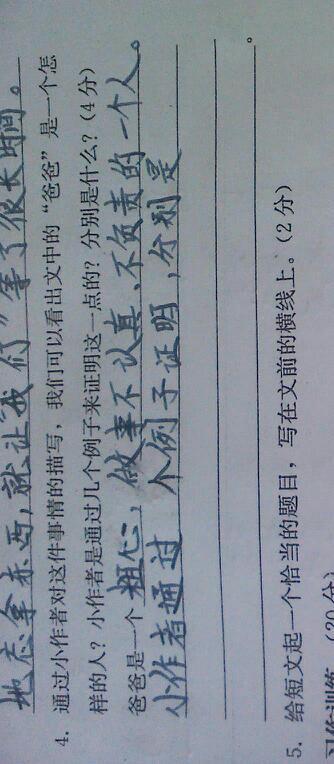 地忘拿东西,就让我们"等了很长时间。
4. 通过小作者对这件事情的描写，我们可以看出文中的“爸爸”是一个怎
样的人？小作者是通过几个例子来证明这一点的？分别是什么？(4分)
爸爸是一个粗心,做事不认真、不负责的一个人。
小作者通过 个例子证明,分别是
。
5. 给短文起一个恰当的题目，写在文前的横线上。(2分)